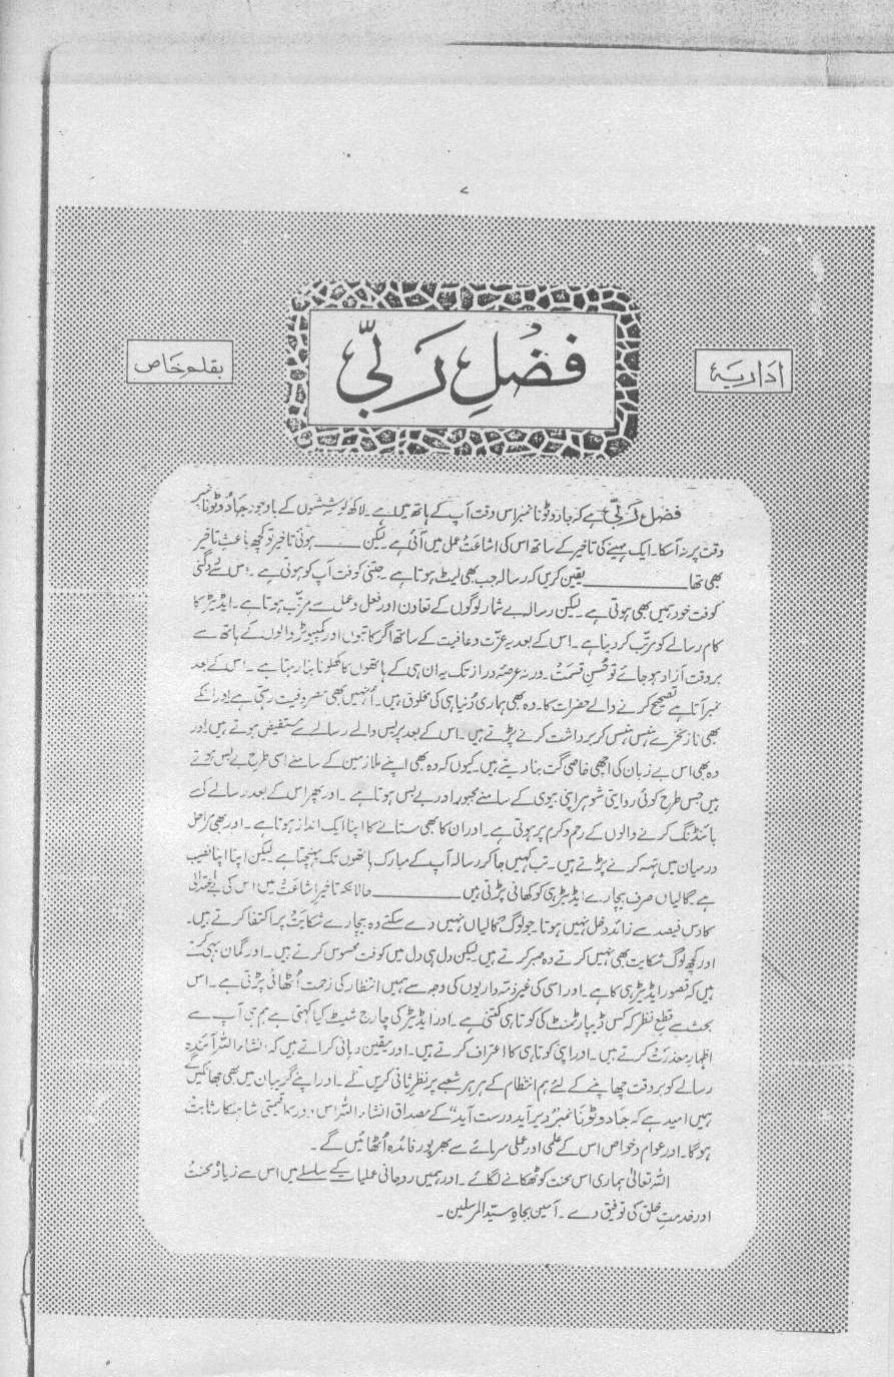 ۷
اداریہ
فضلِ ربّی
بقلم خاص
فضل ربّی ہے کہ جادو ٹونا نمبر اس وقت آپ کے ہاتھ میں ہے۔ لاکھ کوششوں کے باوجود جادو ٹونا نمبر
وقت پر نہ آسکا۔ ایک مہینے کی تاخیر کے ساتھ اس کی اشاعت عمل میں آئی ہے لیکن ——— ہوئی تاخیر تو کچھ باعث تاخیر
بھی تھا ——— یقین کریں کہ رسالہ جب بھی لیٹ ہوتا ہے۔ جتنی کوفت آپ کو ہوتی ہے۔ اس سے دگنی
کوفت خود ہمیں بھی ہوتی ہے۔ لیکن رسالہ بے شمار لوگوں کے تعاون اور فعل و عمل سے مرتب ہوتا ہے۔ ایڈیٹر کا
کام رسالے کو مرتب کر دینا ہے۔ اس کے بعد یہ عزت و عافیت کے ساتھ اگر کاتبوں اور کمپیوٹر والوں کے ہاتھ سے
بروقت آزاد ہو جائے تو حُسنِ قسمت۔ ورنہ عرصۂ دراز تک یہ ان ہی کے ہاتھوں کا کھلونا بنا رہتا ہے۔ اس کے بعد
نمبر آتا ہے تصحیح کرنے والے حضرات کا۔ وہ بھی ہماری دُنیا ہی کی مخلوق ہیں۔ اُنہیں بھی مصروفیت رہتی ہے اور انکے
بھی ناز نخرے ہنس ہنس کر برداشت کرنے پڑتے ہیں۔ اس کے بعد پریس والے رسالے سے مستفیض ہوتے ہیں اور
وہ بھی اس بے زبان کی اچھی خاصی گت بنا دیتے ہیں۔ کیوں کہ وہ بھی اپنے ملازمین کے سامنے اسی طرح بے بس ہوتے
ہیں جس طرح کوئی روایتی شوہر اپنی بیوی کے سامنے مجبور اور بے بس ہوتا ہے۔ اور پھر اس کے بعد رسالے کی
بائنڈنگ کرنے والوں کے رحم و کرم پر ہوتی ہے۔ اور ان کا بھی ستانے کا اپنا ایک انداز ہوتا ہے۔ اور بھی مراحل
درمیان میں تہہ کرنے پڑتے ہیں۔ تب کہیں جا کر رسالہ آپ کے مبارک ہاتھوں تک پہنچتا ہے لیکن اپنا اپنا نصیب
ہے گالیاں صرف بیچارے ایڈیٹر ہی کو کھانی پڑتی ہیں ——— حالانکہ تاخیرِ اشاعت میں اس کی بے اعتدالی
کا دس فیصد سے زائد دخل نہیں ہوتا۔ جو لوگ گالیاں نہیں دے سکتے وہ بیچارے شکایت پر اکتفا کرتے ہیں۔
اور کچھ لوگ شکایت بھی نہیں کرتے وہ صبر کرتے ہیں لیکن دل ہی دل میں کوفت محسوس کرتے ہیں۔ اور گمان یہی کرتے
ہیں کہ قصور ایڈیٹر ہی کا ہے۔ اور اسی کی غیر ذمہ داریوں کی وجہ سے ہمیں انتظار کی زحمت اُٹھانی پڑتی ہے۔ اس
بحث سے قطع نظر کہ کس ڈیپارٹمنٹ کی کوتاہی کتنی ہے۔ اور ایڈیٹر کی چارج شیٹ کیا کہتی ہے ہم ہی آپ سے
اظہار معذرت کرتے ہیں۔ اور اپنی کوتاہی کا اعتراف کرتے ہیں۔ اور یقین دہانی کراتے ہیں کہ انشاء اللہ آئندہ
رسالے کو بروقت چھاپنے کے لئے ہم انتظام کے ہر ہر شعبے پر نظر ثانی کریں گے۔ اور اپنے گریبان میں بھی جھانکیں گے
ہمیں امید ہے کہ جادو ٹونا نمبر "دیر آید درست آید" کے مصداق انشاء اللہ اس دور کا قیمتی شاہکار ثابت
ہوگا۔ اور عوام و خواص اس کے علمی اور عملی سرمائے سے بھرپور فائدہ اُٹھائیں گے۔
اللہ تعالیٰ ہماری اس محنت کو ٹھکانے لگائے۔ اور ہمیں روحانی عملیات کے سلسلے میں اس سے زیادہ محنت
اور خدمتِ خلق کی توفیق دے۔ آمین بجاہِ سیّد المرسلین۔